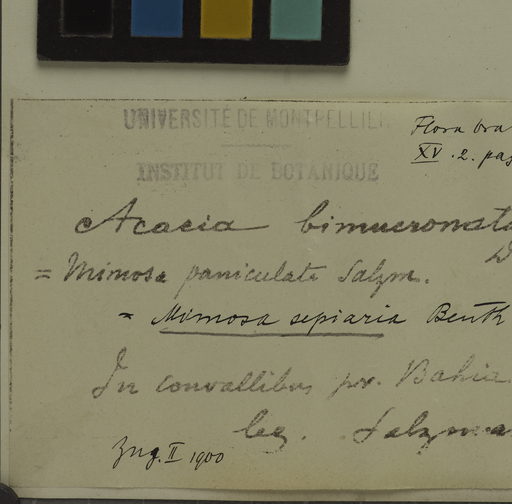 UNIVERSITÉ DE MONTPELLIER
INSTITUT DE BOTANIQUE
Flora bra
XV. 2. pag
Acacia bimucronata
D
= Mimosa paniculata Salzm.
= Mimosa sepiaria Benth
In convallibus pr. Bahia
leg. Salzma
II 1900